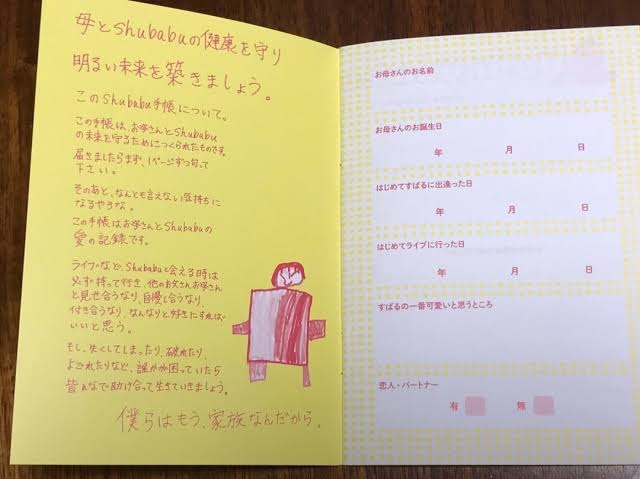 母とshubabuの健康を守り
明るい未来を築きましょう。
このShubabu手帳について。
この手帳は、お母さんとShubabu
の未来を守るためにつくられたものです。
届きましたらまず、1ページずつ匂って
下さい。
そのあと、なんとも言えない気持ちに
なるやろな。
この手帳はお母さんとShubabuの
愛の記録です。
ライブなど、Shubabuと会える時は
必ず持って行き、他のお父さんお母さん
と見せ合うなり、自慢し合うなり、
付き合うなり、なんなりと好きにすれば
いいと思う。
もし、失くしてしまったり、破れたり、
よごれたりなど、誰かが困っていたら
皆んなで助け合って生きていきましょう。
僕らはもう、家族なんだから。
お母さんのお名前
お母さんのお誕生日
年 月 日
はじめてすばるに出逢った日
年 月 日
はじめてライブに行った日
年 月 日
すばるの一番可愛いと思うところ
恋人・パートナー
有 無